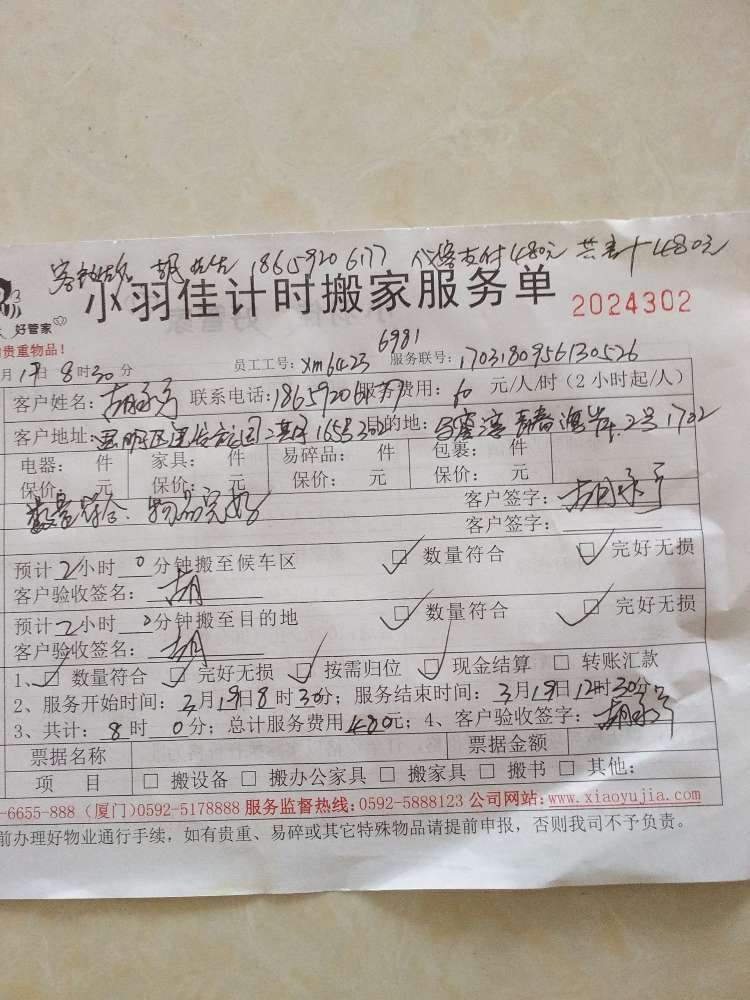 胡先生 18659206177 代客支付480元 共计480元
小羽佳计时搬家服务单 2024302
好管家
贵重物品！
6981
月19日8时30分 员工工号：xm6423 服务联号：1703180956130526
客户姓名： 联系电话：18659206177 服务费用：60元/人/时（2小时起/人）
客户地址： 目的地： 2号1702
电器： 件 家具： 件 易碎品： 件 包裹： 件
保价： 元 保价： 元 保价： 元 保价： 元
数量符合、物品完好 客户签字：
客户签字：
预计2小时0分钟搬至候车区 ☑数量符合 ☑完好无损
客户验收签名：胡
预计2小时0分钟搬至目的地 ☑数量符合 ☑完好无损
客户验收签名：胡
1、☑数量符合 ☑完好无损 ☑按需归位 ☑现金结算 □转账汇款
2、服务开始时间：3月19日8时30分；服务结束时间：3月19日12时30分
3、共计：8时0分；总计服务费用480元；4、客户验收签字：
票据名称 票据金额
项 目 □搬设备 □搬办公家具 □搬家具 □搬书 □其他：
-6655-888（厦门）0592-5178888 服务监督热线：0592-5888123 公司网站：www.xiaoyujia.com
前办理好物业通行手续，如有贵重、易碎或其它特殊物品请提前申报，否则我司不予负责。